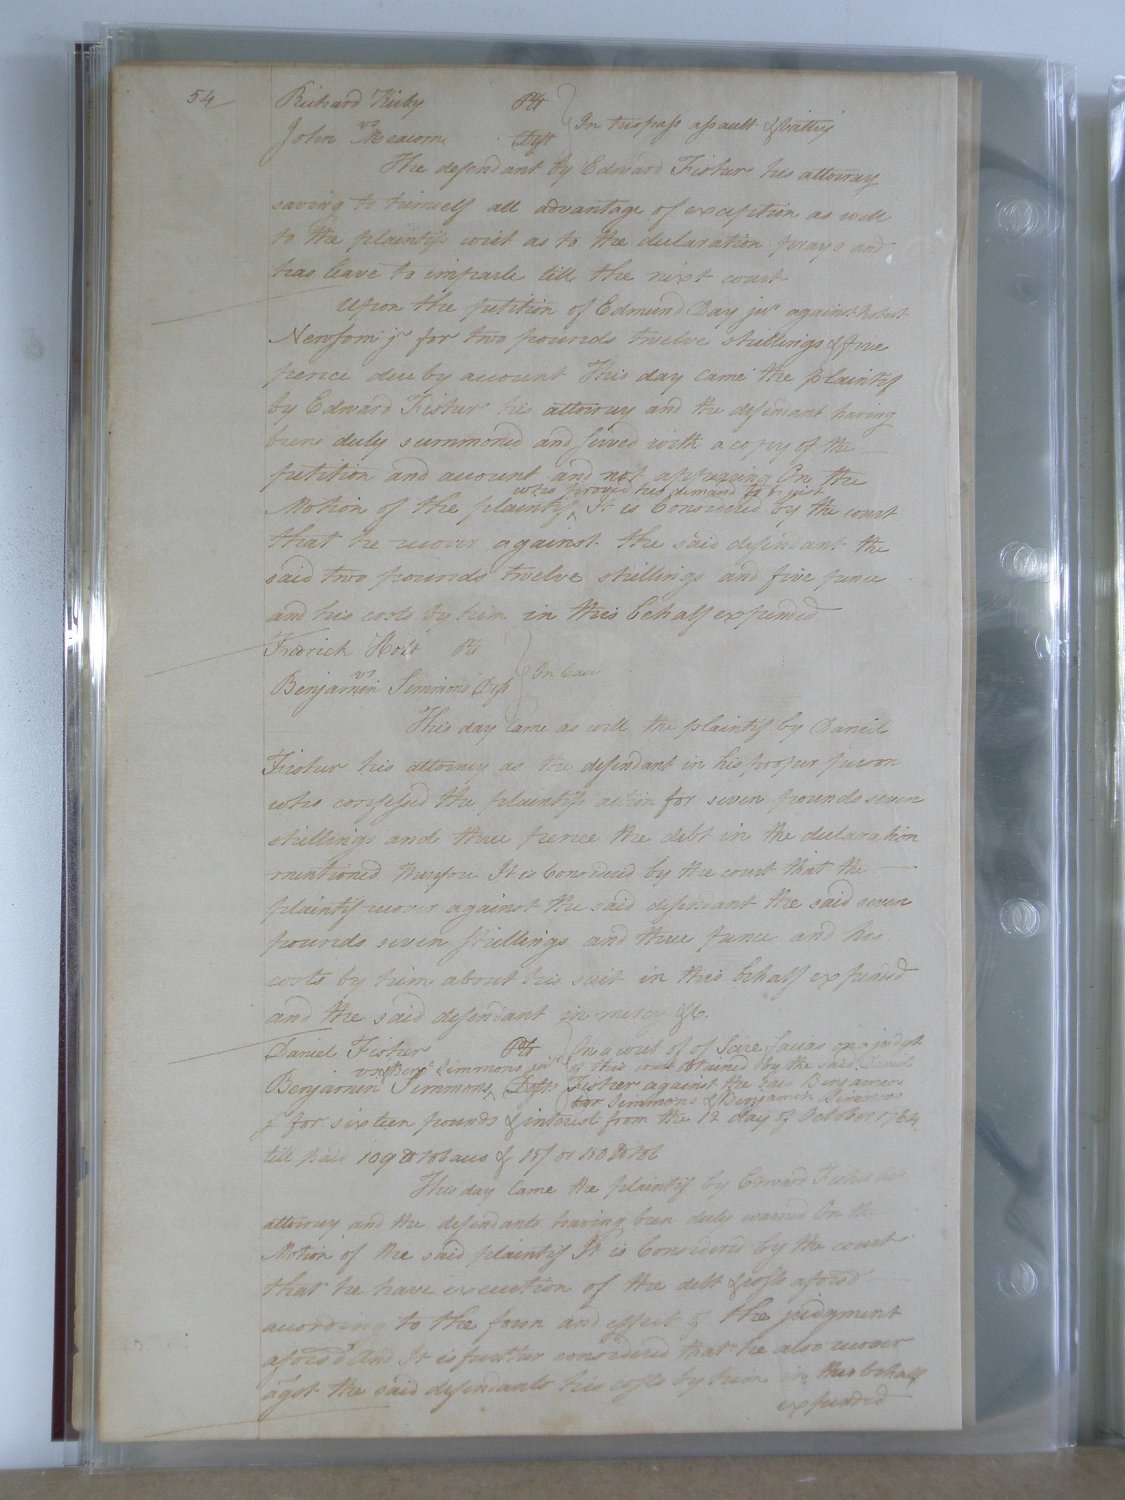 54
Richard Kirby Plt
vs
John Meacom Deft
In trespass assault & battry
The defendant by Edward Fisher his attorney
saving to himself all advantage of exception as well
to the plaintifs writ as to the declaration prays and
has leave to imparle till the next court
Upon the petition of Edmund Day junr against Robert
Newsom jr for two pounds twelve shillings & five
pence due by account This day came the plaintif
by Edward Fisher his attorney and the defendant having
been duly summoned and served with a copy of the
petition and account and not appearing On the
who proved his demand to be just
Motion of the plaintif ^ It is Considered by the court
that he recover against the said defendant the
said two pounds twelve shillings and five pence
and his costs by him in this behalf expended
Fredrick Holt Plt
vs
Benjamin Simmons Deft
In Case
This day came as well the plaintif by Daniel
Fisher his attorney as the defendant in his proper person
who confessed the plaintifs action for seven pounds seven
shillings and three pence the debt in the declaration
mentioned Therefore It is Considered by the court that the
plaintif recover against the said defendant the said seven
pounds seven shillings and three pence and his
costs by him about his suit in this behalf expended
and the said defendant in mercy &c.
Daniel Fisher Plt
vs & Benj Simmons junr
Benjamin Simmons ^ Defts
On a writ of of Scire facias on a judgt
of this court obtained by the said Daniel
Fisher against the said Benjamin
for Simmons & Benjamin Simmons
jr for sixteen pounds & interest from the 12 day of October 1764
till paid 109 lb tobacco & 15/ or 150 lb tob
This day Came the plaintif by Edward Fisher his
attorney and the defendants having been duly warned On the
Motion of the said plaintif It is Considered by the court
that he have execution of the debt & costs aforesd
according to the form and effect of the judgment
aforesd And It is further considered that he also recover
agst the said defendants his costs by him in this behalf
expended